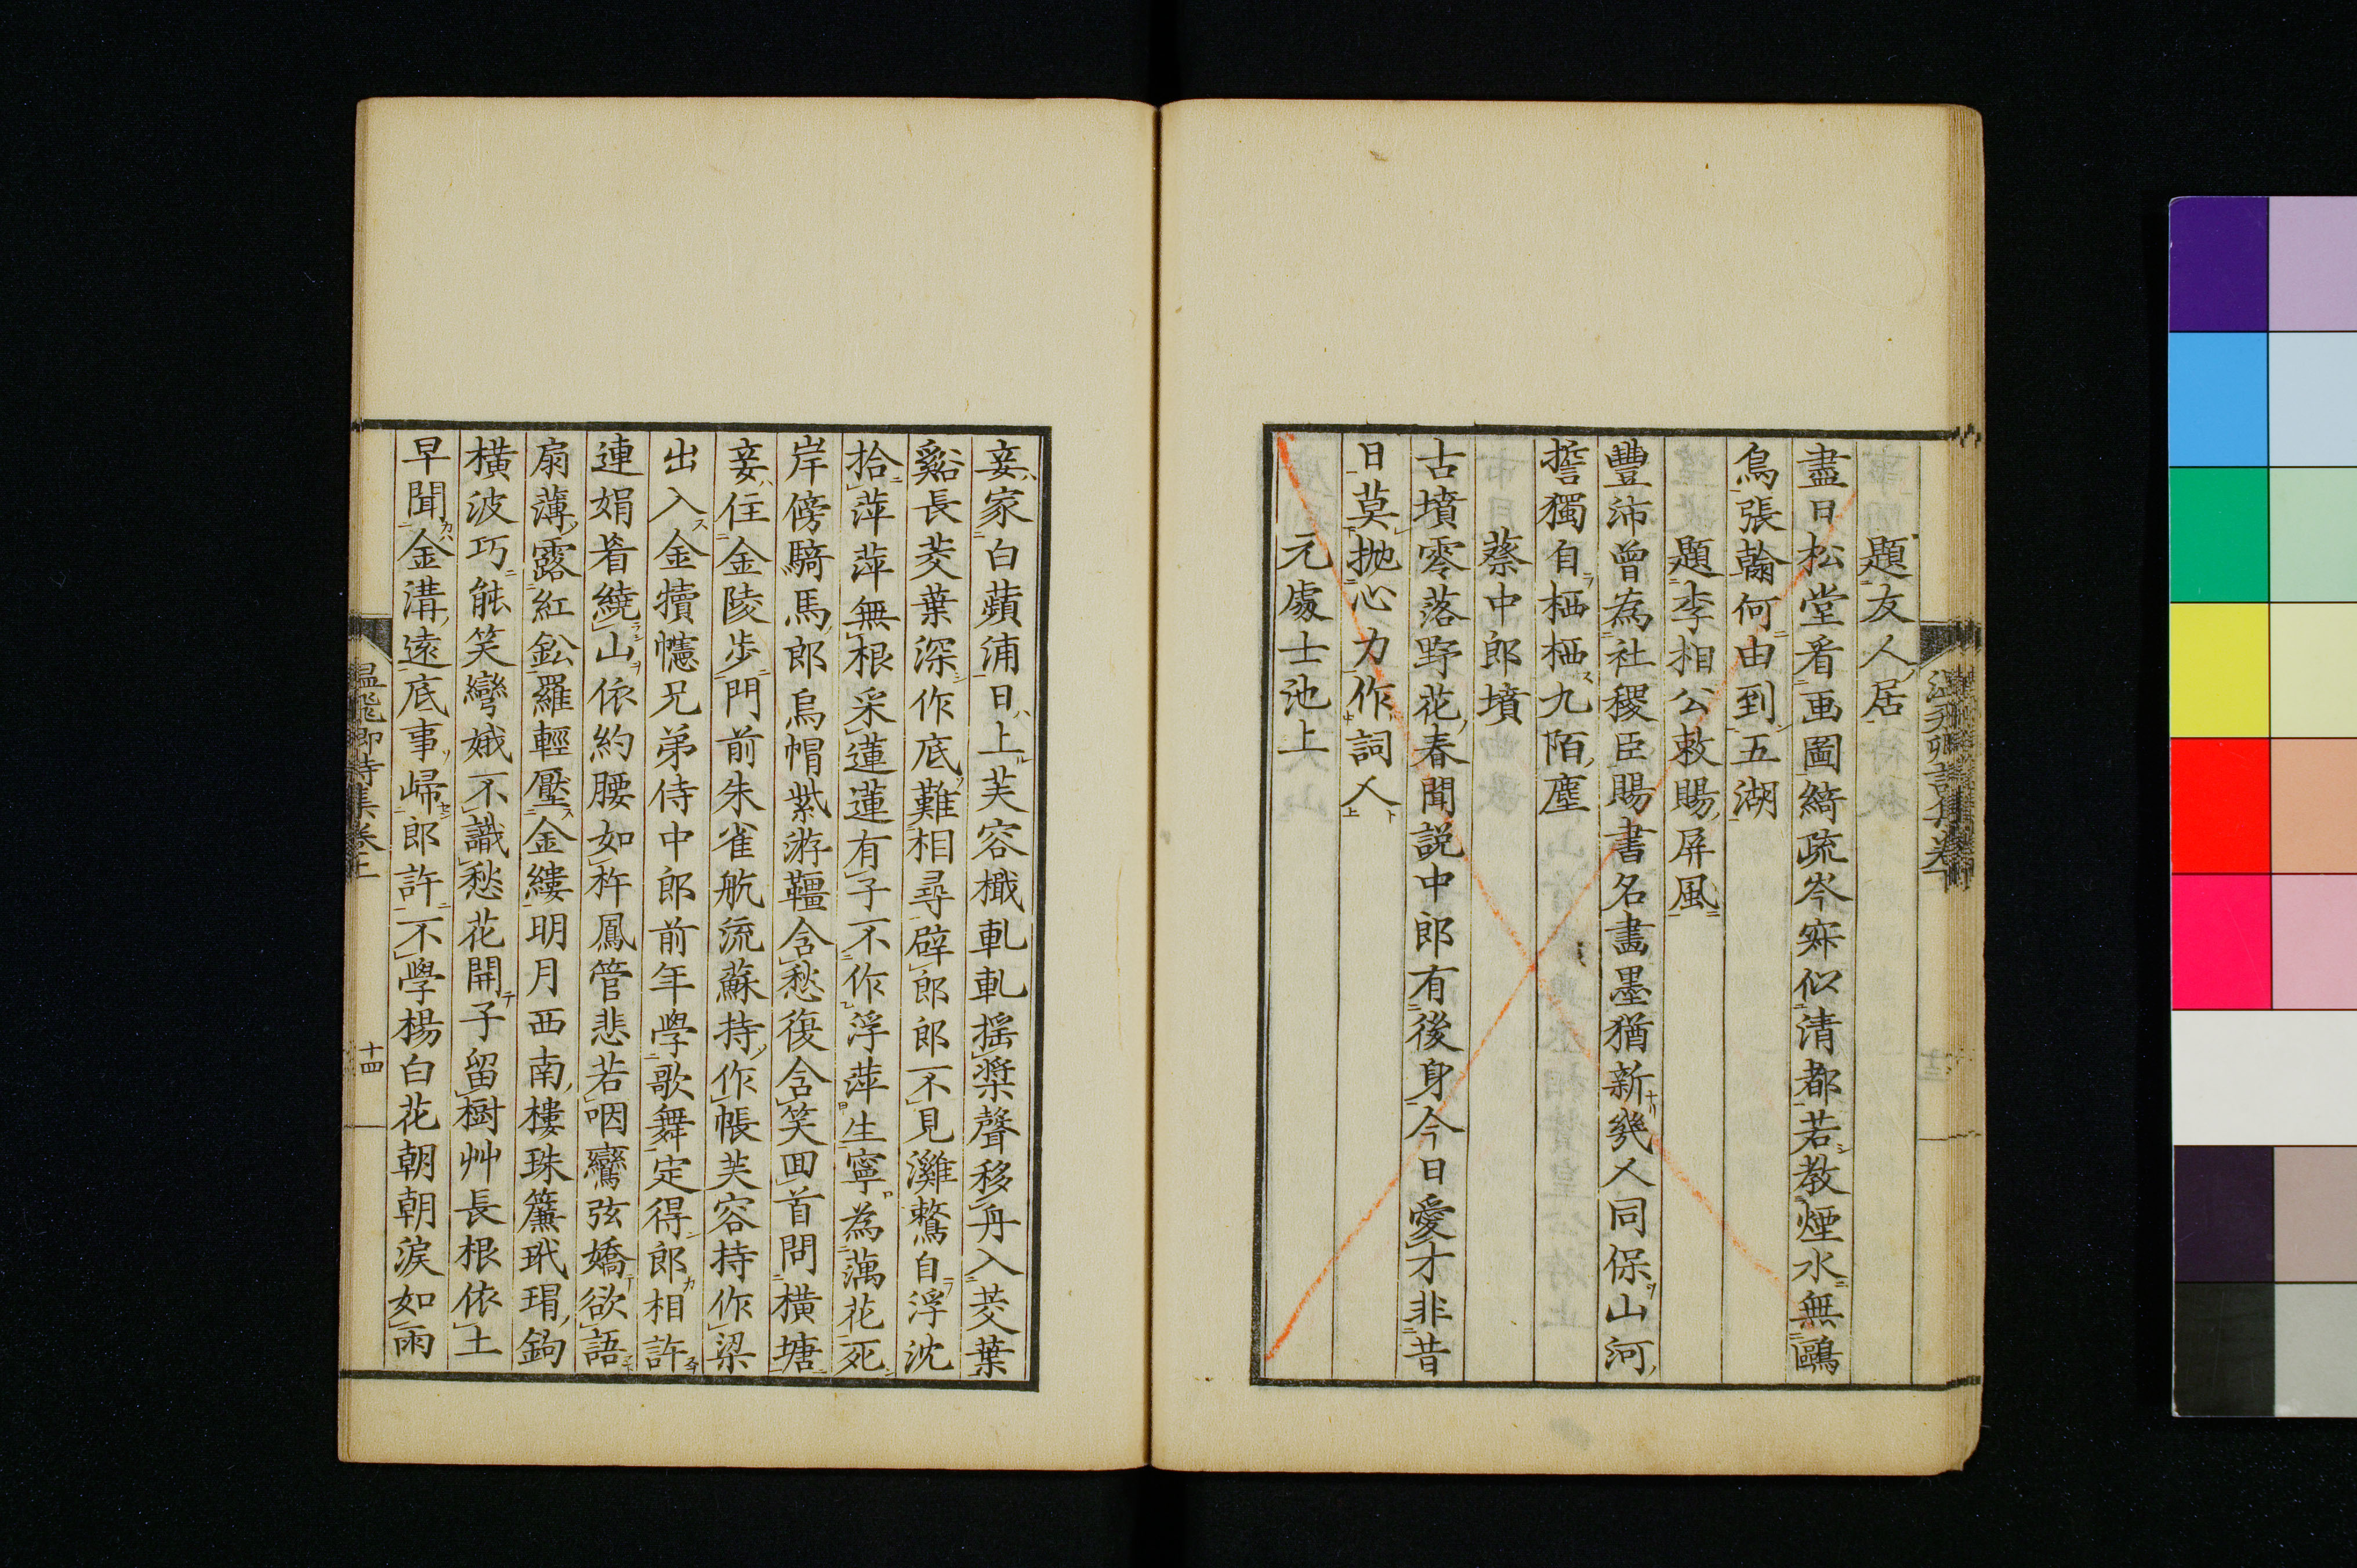 題友人居
盡日松堂看画圖綺疏岑寂似清都若教煙水無鷗
鳥張翰何由到五湖
題李相公敕賜屏風
豐沛曾為社稷臣賜書名畫墨猶新幾人同保山河
誓獨自栖栖九陌塵
蔡中郎墳
古墳零落野花春聞説中郎有後身今日愛才非昔
日莫抛心力作詞人
元處士池上
妾家白蘋浦日上芙容檝軋軋揺槳聲移舟入茭葉
谿長茭葉深作底難相尋辟郎郎不見鸂鷘自浮沈
拾萍萍無根采蓮蓮有子不作浮萍生寧為藕花死
岸傍騎馬郎烏帽紫游韁含愁復含笑回首問橫塘
妾住金陵步門前朱雀航流蘇持作帳芙容持作梁
出入金犢幰兄弟侍中郎前年學歌舞定得郎相許
連娟眉繞山依約腰如杵鳳管悲若咽鸞弦嬌欲語
扇薄露紅鈆羅輕壓金縷明月西南樓珠簾玳瑁鉤
橫波巧能笑彎蛾不識愁花開子留樹艸長根依土
早聞金溝遠底事歸郎許不學楊白花朝朝淚如雨
温飛卿詩集卷上
十四